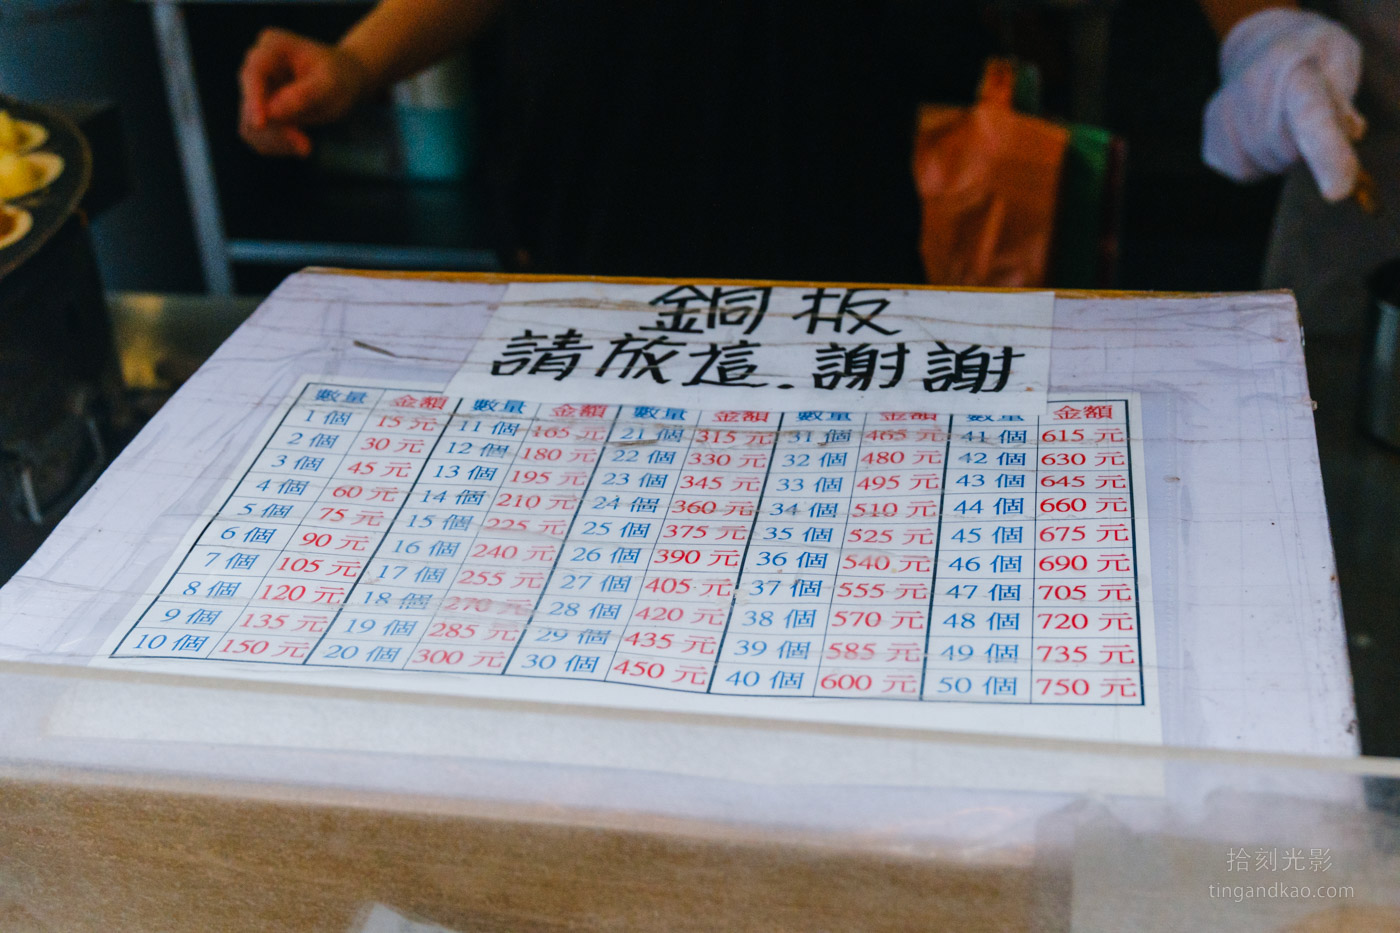 銅板
請放這.謝謝
數量 金額 數量 金額 數量 金額 數量 金額 數量 金額
1 個 15 元 11 個 165 元 21 個 315 元 31 個 465 元 41 個 615 元
2 個 30 元 12 個 180 元 22 個 330 元 32 個 480 元 42 個 630 元
3 個 45 元 13 個 195 元 23 個 345 元 33 個 495 元 43 個 645 元
4 個 60 元 14 個 210 元 24 個 360 元 34 個 510 元 44 個 660 元
5 個 75 元 15 個 225 元 25 個 375 元 35 個 525 元 45 個 675 元
6 個 90 元 16 個 240 元 26 個 390 元 36 個 540 元 46 個 690 元
7 個 105 元 17 個 255 元 27 個 405 元 37 個 555 元 47 個 705 元
8 個 120 元 18 個 270 元 28 個 420 元 38 個 570 元 48 個 720 元
9 個 135 元 19 個 285 元 29 個 435 元 39 個 585 元 49 個 735 元
10 個 150 元 20 個 300 元 30 個 450 元 40 個 600 元 50 個 750 元
拾刻光影
tingandkao.com